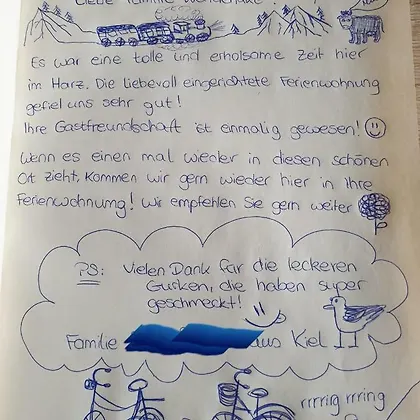 Liebe Familie
Es war eine tolle und erholsame Zeit hier
im Harz. Die liebevoll eingerichtete Ferienwohnung
gefiel uns sehr gut!
Ihre Gastfreundschaft ist einmalig gewesen!
Wenn es einen mal wieder in diesen schönen
Ort zieht, kommen wir gern wieder hier in Ihre
Ferienwohnung! Wir empfehlen Sie gern weiter
PS: Vielen Dank für die leckeren
Gurken, die haben super
geschmeckt!
Familie aus Kiel
rrrrrig rrrring